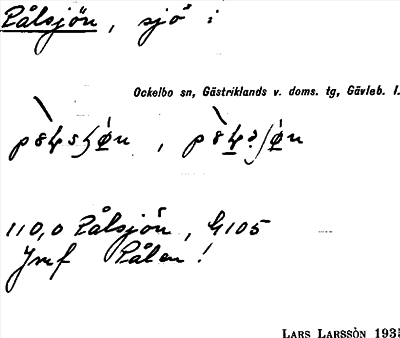 Pålsjön, sjö i
Ockelbo sn, Gästriklands v. doms. tg, Gävleb. l.
110,0 Pålsjön, G105
Jmf Pålen!
LARS LARSSÒN 1935